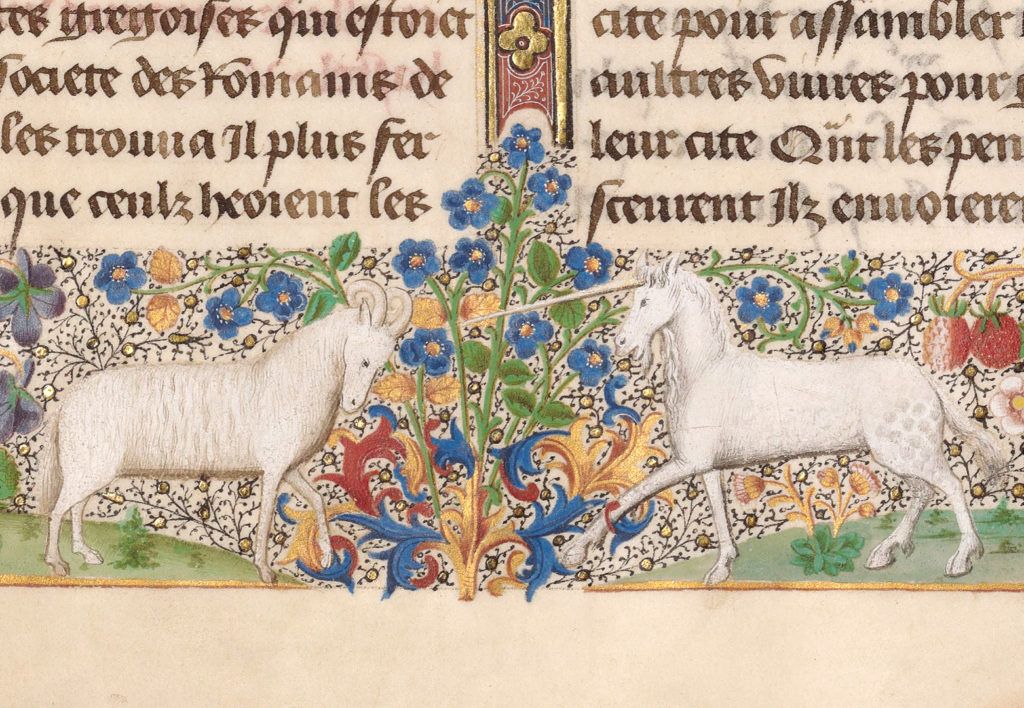 tes gregoises qui estoiet
societe des Romains de
les trouua Il plus fer
que ceulz heoient les
cite pour assambler
aultres viures pour
leur cite Qũt les pen
sceurent Ilz enuoiere